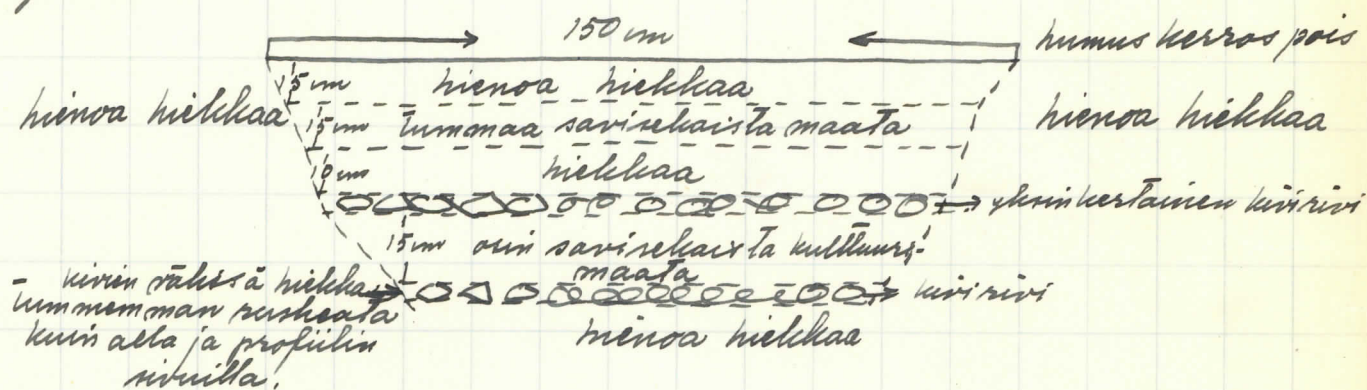 150 cm
humus kerros pois
5 cm hienoa hiekkaa
hienoa hiekkaa
15 cm tummaa savisekaista maata
hienoa hiekkaa
10 cm hiekkaa
yksinkertainen kivirivi
15 cm osin savisekaista kulttuuri-
maata
kivien välissä hiekka
tummemman ruskeata
kuin alla ja profiilin
sivuilla.
kivirivi
hienoa hiekkaa